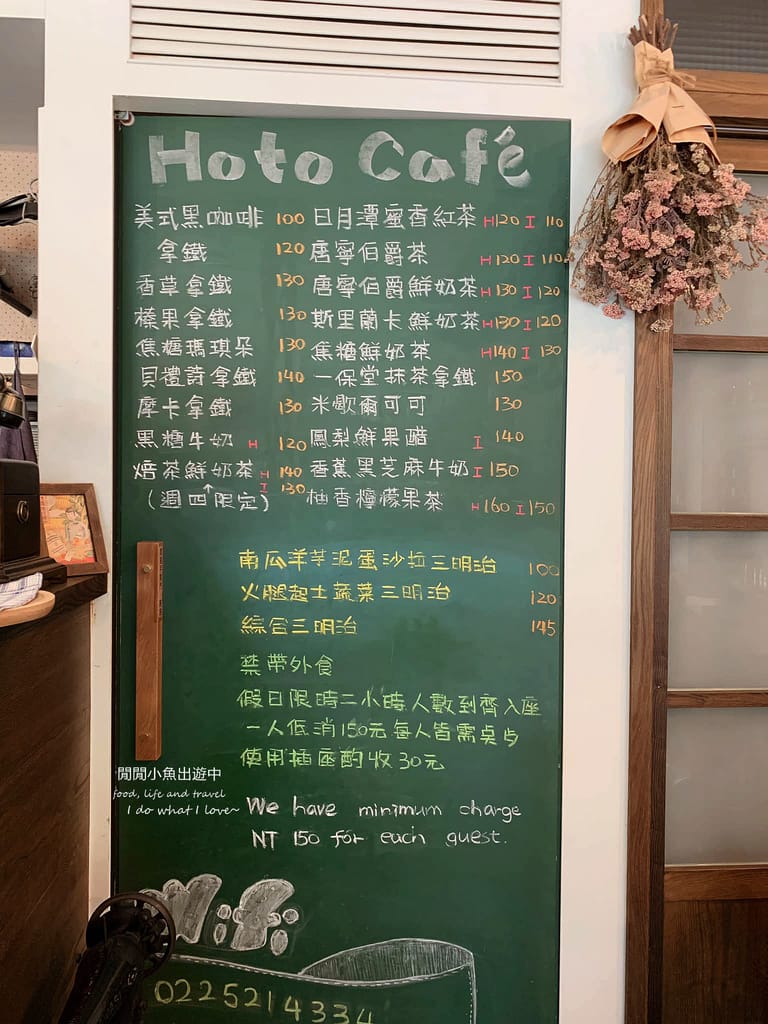 Hoto Café
美式黑咖啡 100
拿鐵 120
香草拿鐵 130
榛果拿鐵 130
焦糖瑪琪朵 130
貝禮詩拿鐵 140
摩卡拿鐵 130
黑糖牛奶 H 120
焙茶鮮奶茶 H 140 I 130
(週四↑限定)
日月潭蜜香紅茶 H120 I 110
唐寧伯爵茶 H120 I 110
唐寧伯爵鮮奶茶 H130 I 120
斯里蘭卡鮮奶茶 H130 I 120
焦糖鮮奶茶 H140 I 130
一保堂抹茶拿鐵 150
米歇爾可可 130
鳳梨鮮果醋 I 140
香蕉黑芝麻牛奶 I 150
柚香檸檬果茶 H160 I 150
南瓜洋芋泥蛋沙拉三明治 100
火腿起士蔬菜三明治 120
綜合三明治 145
禁帶外食
假日限時二小時人數到齊入座
一人低消150元每人皆需桌点
使用插座酌收30元
閒閒小魚出遊中
food, life and travel
I do what I love~
We have minimum charge
NT 150 for each guest.
Wifi
0225214334